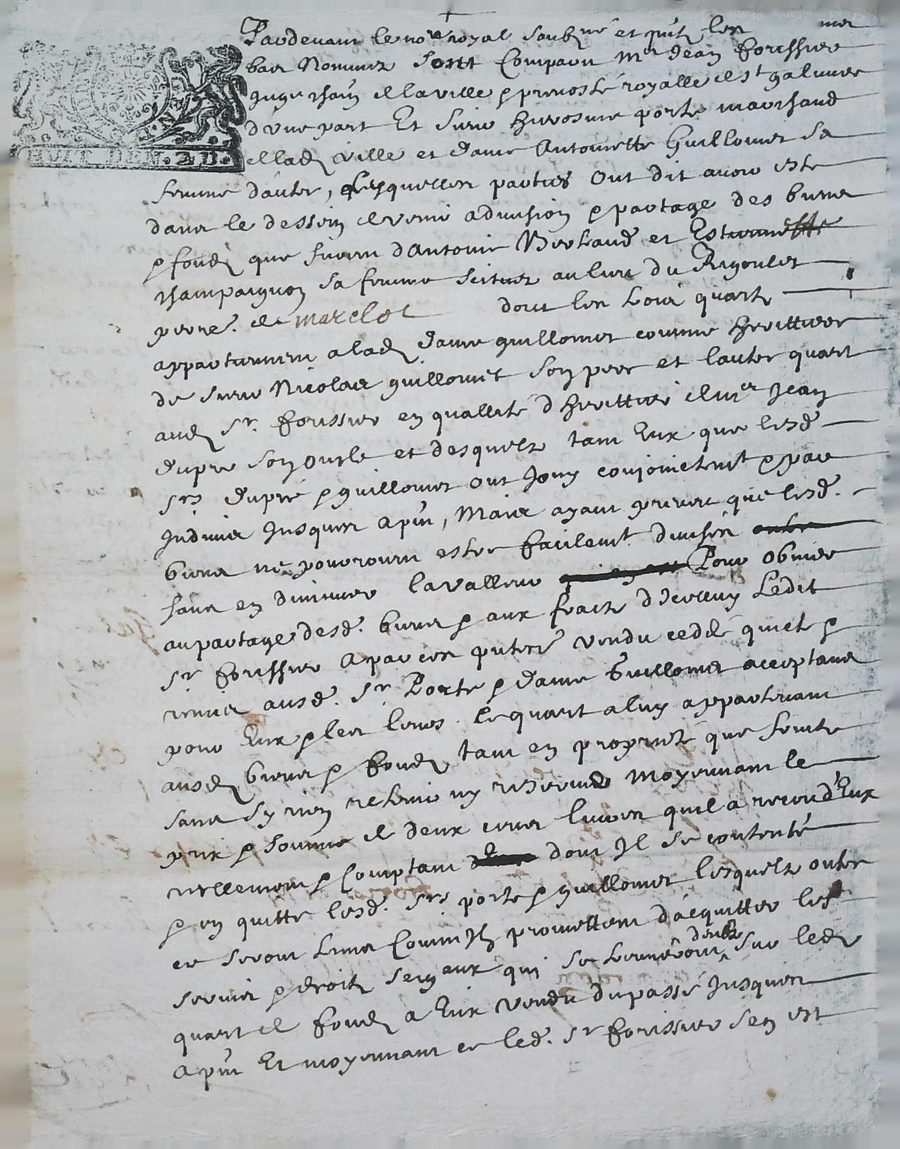 HUIT DEN. 2 D.
Pardevant le no.re royal soub.né et pnts les
bas nommez sont comparu M.re Jean Forissier
de la ville & prevosté royalle de St galmier
d'une part Et sieur hierosme porte marchand
de lad. ville et dame Antoinette Guillomet sa
femme d'autre, Lesquelles parties ont dit avoir esté
dans le dessein de venir a division & partage des biens
& fonds que furent d'Antoine Berhaud et Estiennette
Champaignon sa femme scitues au lieu du Rigoulet
perre. de marclot dont les trois quarts
appartiennent a lad. dame guillomet comme herittiere
de sieur Nicolas guillomet son pere et l'autre quart
aud. Sr. forissier en quallité d'herittier de Mre Jean
dupré son oncle et desquels tant Eux que lesd.
Srs dupré & guillomet ont jouy conjoinctemt & par
Indivis jusques a pnt, Mais ayant preveu que lesd.
biens ne pourroient estre facilemt divisés
sans en diminuer la valleur Pour obvier
au partage desd. biens & aux fraits d'icelluy Ledit
Sr forissier a par ces pntes vendu ceddé quicté &
remis ausd. Sr Porte & dame Guillomet acceptans
pour Eux & les leurs. Le quart a luy appartenant
ausd. biens & fonds tant en proprieté que
sans s'y rien retenir ny reserver Moyennant le
prix & somme de deux cens livres qu'il a receu d'Eux
reellement & comptant dont Il se contente
& en quitte lesd. Srs porte & guillomet lesquels outre
ce seront tenus promettent d'acquitter les
servis & droits seigeux qui se trouveront deubs sur led.
quart de fonds a Eux vendu du passé jusques
a pnt Et moyennant ce led. Sr forissier s'en est